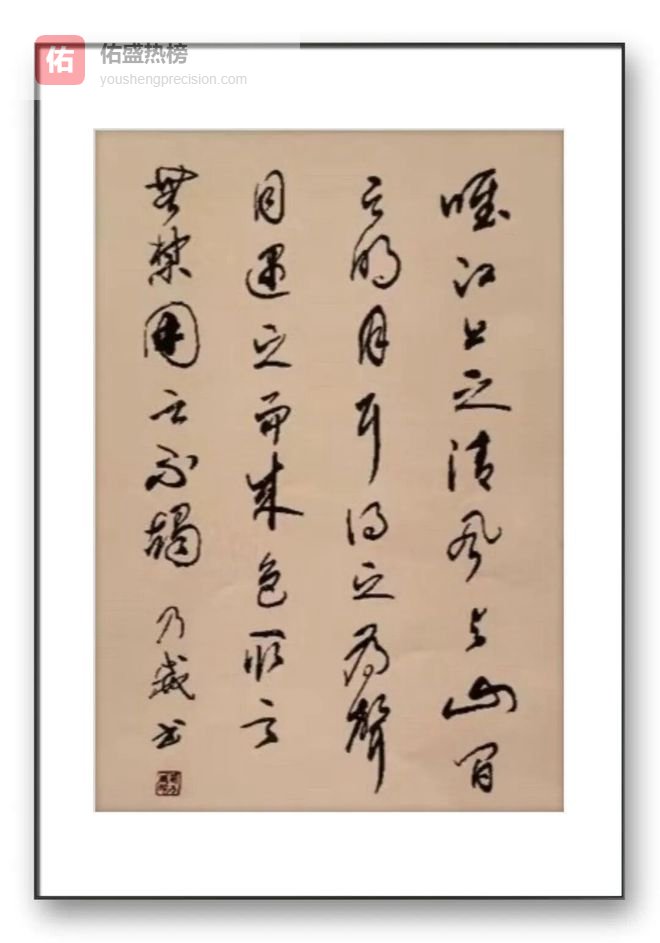 佑
佑盛热榜
youshengprecision.com
唯江上之清风与山间
之明月耳得之为聲
目遇之而成色取之
無禁用之不竭
乃 书